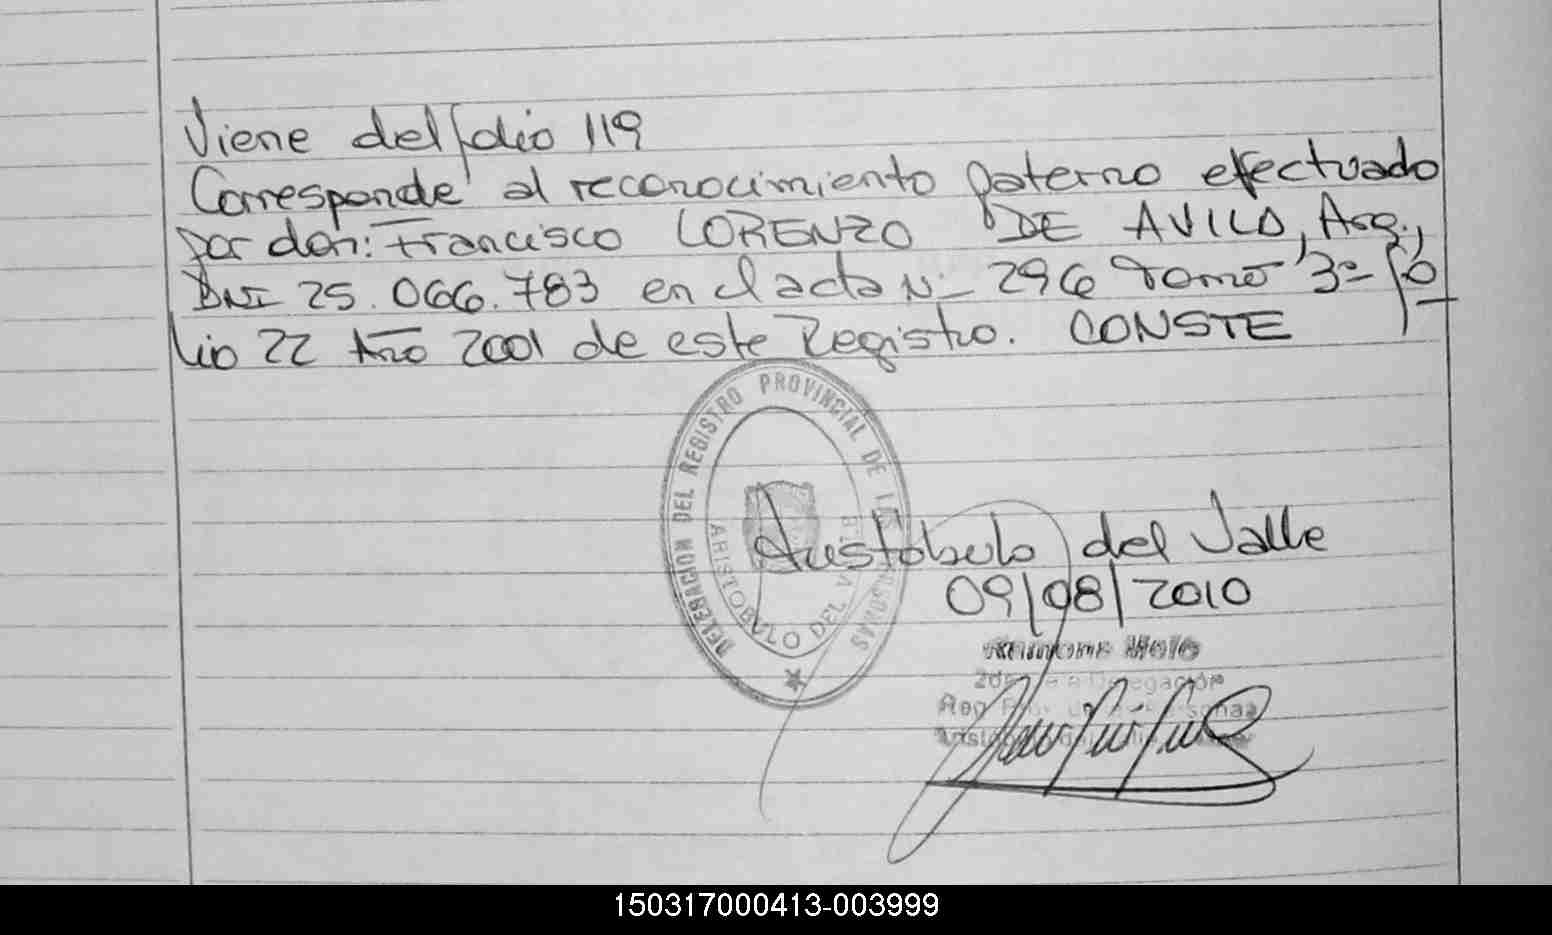 Viene del folio 119
Corresponde al reconocimiento paterno efectuado
por don: Francisco LORENZO DE AVILA, Arg.,
DNI 25.066.783 en el acta N- 296 Tomo 3º fo
lio 22 Año 2001 de este Registro. CONSTE
DELEGACION DEL REGISTRO PROVINCIAL DE LAS PERSONAS
ARISTOBULO DEL VALLE
Aristobulo del Valle
09/08/2010
Ramona
Delegación
150317000413-003999